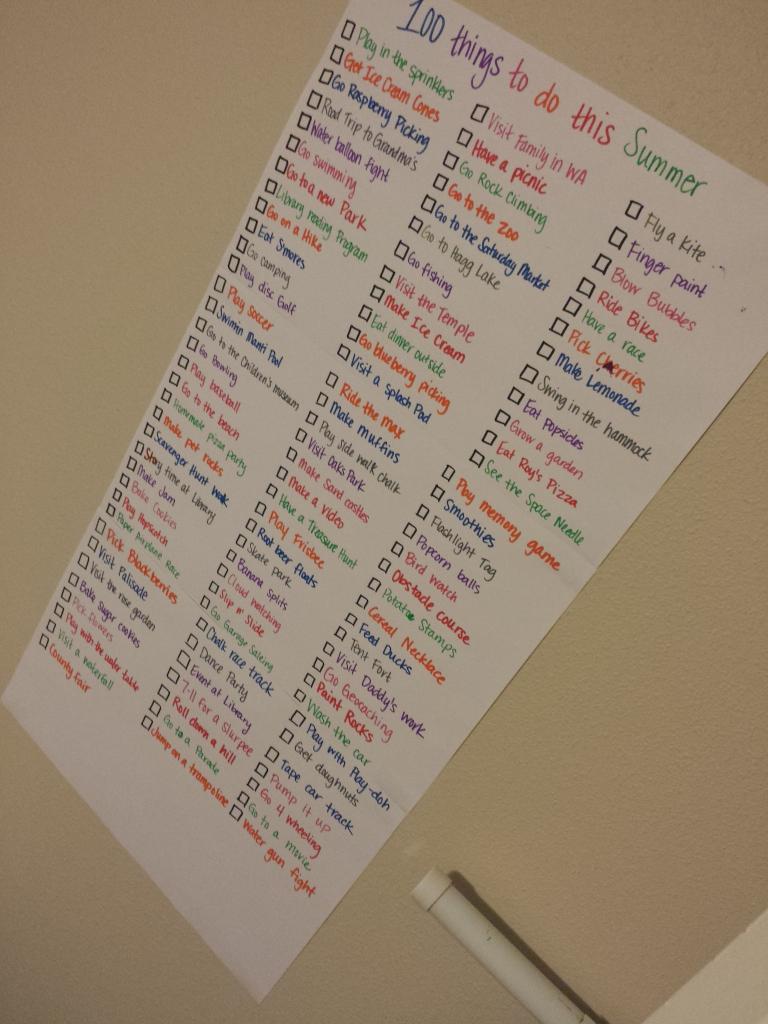 100 things to do this Summer
Play in the sprinklers
Get Ice Cream Cones
Go Raspberry Picking
Road Trip to Grandma's
Water balloon fight
Go swimming
Go to a new Park
Library reading Program
Go on a Hike
Eat S'mores
Go camping
Play disc Golf
Play soccer
Swimin Manti Pool
Go to the Children's museum
Go Bowling
Play baseball
Go to the beach
Homemade pizza party
Make pet rocks
Scavenger Hunt walk
Story time at Library
Make Jam
Bake Cookies
Play Hopscotch
Paper Airplane Race
Pick Blackberries
Visit Palisade
Visit the rose garden
Bake sugar cookies
Pick flowers
Play with the water table
Visit a waterfall
County fair
Visit Family in WA
Have a picnic
Go Rock Climbing
Go to the Zoo
Go to the Saturday Market
Go to Hagg Lake
Go fishing
Visit the Temple
Make Ice Cream
Eat dinner outside
Go blueberry picking
Visit a Splash Pad
Ride the max
Make muffins
Play side walk chalk
Visit Oaks Park
Make Sand castles
Make a video
Have a Treasure Hunt
Play Frisbee
Root beer floats
Skate park
Banana splits
Cloud watching
Slip n' Slide
Go Garage Saleing
Chalk race track
Dance Party
Event at Library
7-11 for a Slurpee
Roll down a hill
Go to a Parade
Jump on a trampoline
Fly a Kite
Finger paint
Blow Bubbles
Ride Bikes
Have a race
Pick Cherries
Make Lemonade
Swing in the hammock
Eat Popsicles
Grow a garden
Eat Roy's Pizza
See the Space Needle
Play memory game
Smoothies
Flashlight Tag
Popcorn balls
Bird watch
Obstacle course
Potatoe Stamps
Cereal Necklace
Feed Ducks
Tent Fort
Visit Daddy's work
Go Geocaching
Paint Rocks
Wash the car
Play with Play-doh
Get doughnuts
Tape car track
Pump it up
Go 4 wheeling
Go to a movie
Water gun fight